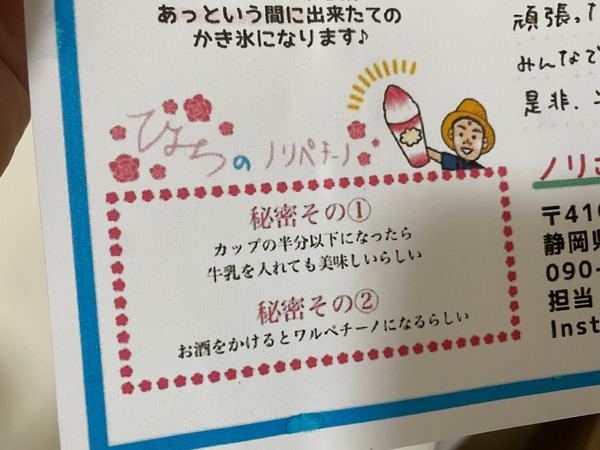 あっという間に出来たての
かき氷になります♪
ひみつの ノリペチーノ
秘密その①
カップの半分以下になったら
牛乳を入れても美味しいらしい
秘密その②
お酒をかけるとワルペチーノになるらしい
頑張った
みんなで
是非、
ノリさ
〒410
静岡県
090-
担当
Inst